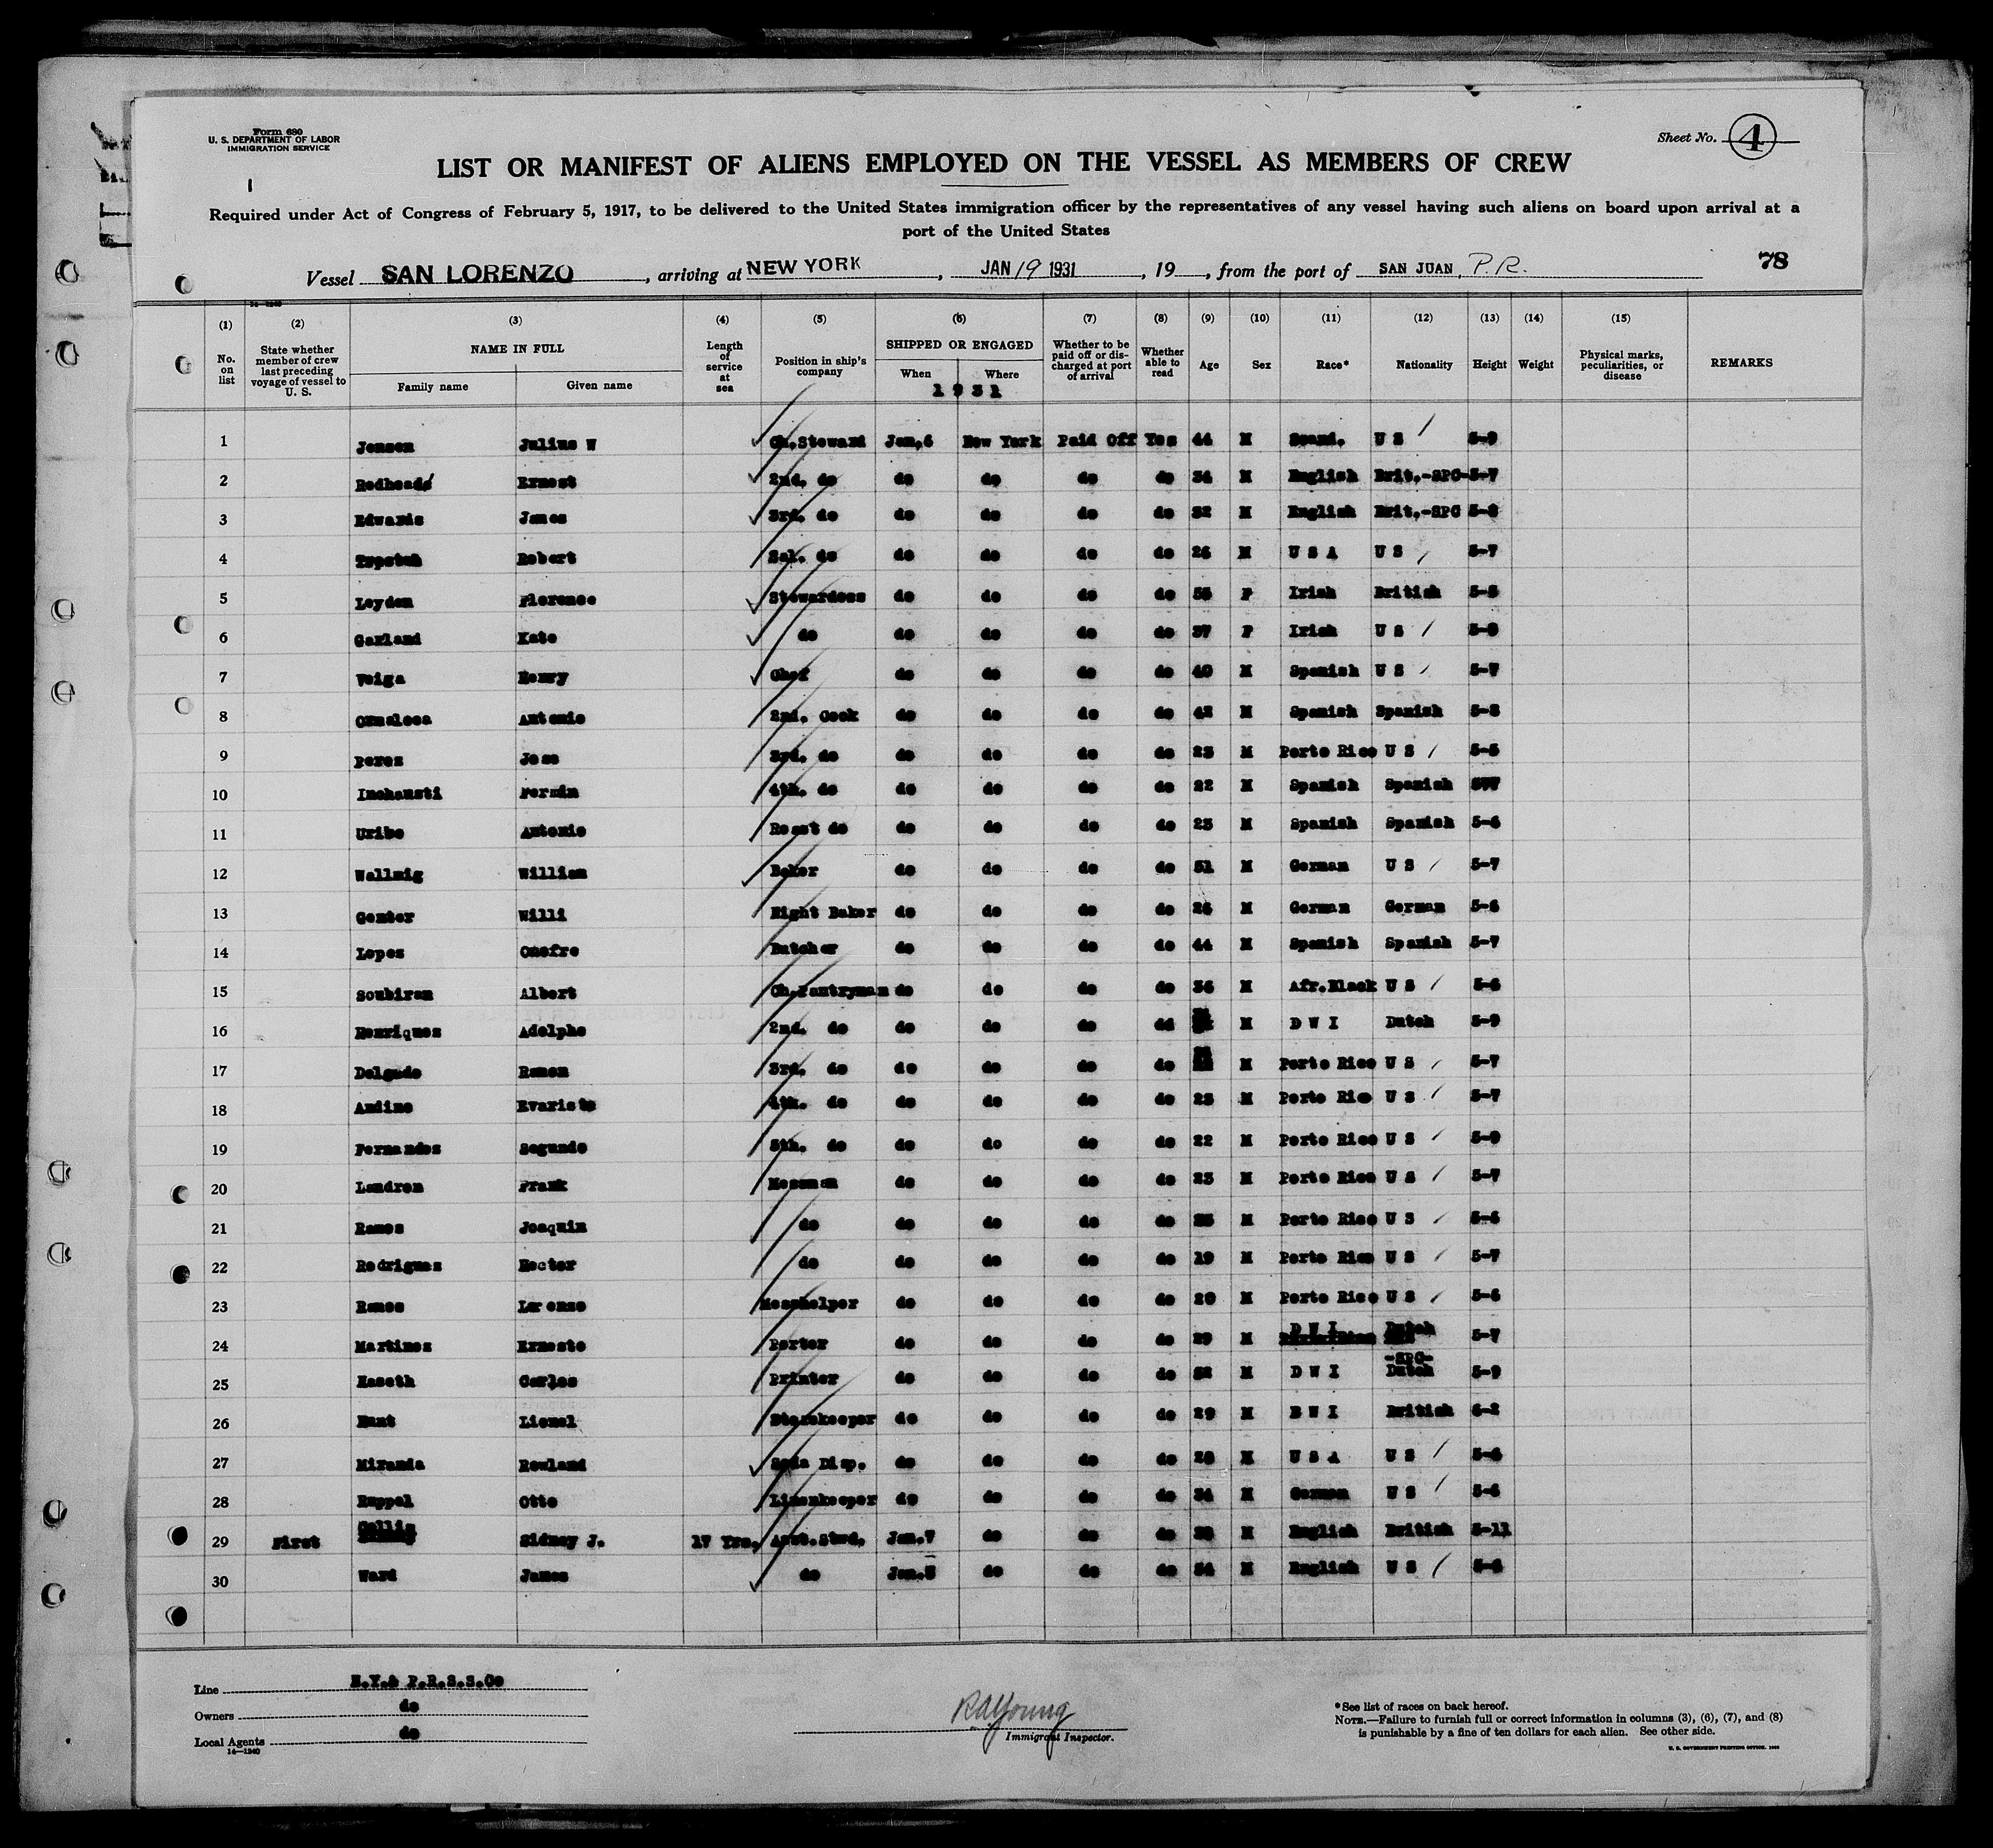 Form 680
U. S. DEPARTMENT OF LABOR
IMMIGRATION SERVICE
Sheet No. 4
LIST OR MANIFEST OF ALIENS EMPLOYED ON THE VESSEL AS MEMBERS OF CREW
Required under Act of Congress of February 5, 1917, to be delivered to the United States immigration officer by the representatives of any vessel having such aliens on board upon arrival at a
port of the United States
Vessel SAN LORENZO, arriving at NEW YORK, JAN 19 1931, 19 , from the port of SAN JUAN, P.R. 78
14—1240
(1) (2) (3) (4) (5) (6) (7) (8) (9) (10) (11) (12) (13) (14) (15)
No. on list State whether member of crew last preceding voyage of vessel to U. S. NAME IN FULL Family name Given name Length of service at sea Position in ship's company SHIPPED OR ENGAGED When Where Whether to be paid off or discharged at port of arrival Whether able to read Age Sex Race* Nationality Height Weight Physical marks, peculiarities, or disease REMARKS
1931
1 Jensen Julius W Ch.Steward Jan,6 New York Paid Off Yes 44 M Scand. U S 5-9
2 Redhead Ernest 2nd. do do do do do 34 M English Brit.-SPG- 5-7
3 Edwards James 3rd. do do do do do 32 M English Brit.-SPG 5-8
4 Robert Sal. do do do do do 26 M U S A U S 5-7
5 Leyden Florence Stewardess do do do do F Irish British 5-5
6 Garland Kate do do do do do 37 F Irish U S
7 Veiga Henry Chef do do do do 40 M Spanish U S 5-7
8 Antonio 2nd. Cook do do do do M Spanish Spanish 5-8
9 Perez Jose 3rd. do do do do do 23 M Porto Rico U S 5-5
10 Inchausti Fermin 4th. do do do do do 22 M Spanish Spanish
11 Uribe Antonio Roast do do do do do 23 M Spanish Spanish 5-6
12 Wallwig William Baker do do do do 51 M German U S 5-7
13 Genter Willi Night Baker do do do do 26 M German German 5-6
14 Lopez Onofre Butcher do do do do 44 M Spanish Spanish 5-7
15 Soubiran Albert Ch.Pantryman do do do do 36 M Afr.Black U S 5-6
16 Henriquez Adolpho 2nd. do do do do dd M D W I Dutch 5-9
17 Delgado Ramon 3rd. do do do do do M Porto Rico U S 5-7
18 Andino Evaristo 4th. do do do do do 23 M Porto Ric U S 5-7
19 Fernandez Segundo 5th. do do do do do 22 M Porto Rico U S 5-9
20 Landron Frank Messman do do do do 23 M Porto Rico U S 5-7
21 Ramos Joaquin do do do do do M Porto Rico U S 5-6
22 Rodriguez Hector do do do do do 19 M Porto Rico U S 5-7
23 Ramos Lorenzo Messhelper do do do do 20 M Porto Rico U S 5-6
24 Martinez Ernesto Porter do do do do 29 M D W I Dutch 5-7
25 Haseth Carlos Printer do do do do M D W I -SPG- Dutch 5-9
26 Hunt Lionel Storekeeper do do do do 29 M B W I British 6-2
27 Miranda Rowland Soda Disp. do do do do 28 M U S A U S 5-6
28 Ruppel Otto Linenkeeper do do do do 34 M German U S 5-6
29 First Collis Sidney J. 17 Yrs. Asst.Stwd. Jan.7 do do do M English British 5-11
30 Ward James do Jan.8 do do do 34 M English U S
Line N.Y.& P.R.S.S.Co
Owners do
Local Agents do
14—1240
R A Young
Immigrant Inspector.
*See list of races on back hereof.
NOTE.—Failure to furnish full or correct information in columns (3), (6), (7), and (8)
is punishable by a fine of ten dollars for each alien. See other side.
U. S. GOVERNMENT PRINTING OFFICE